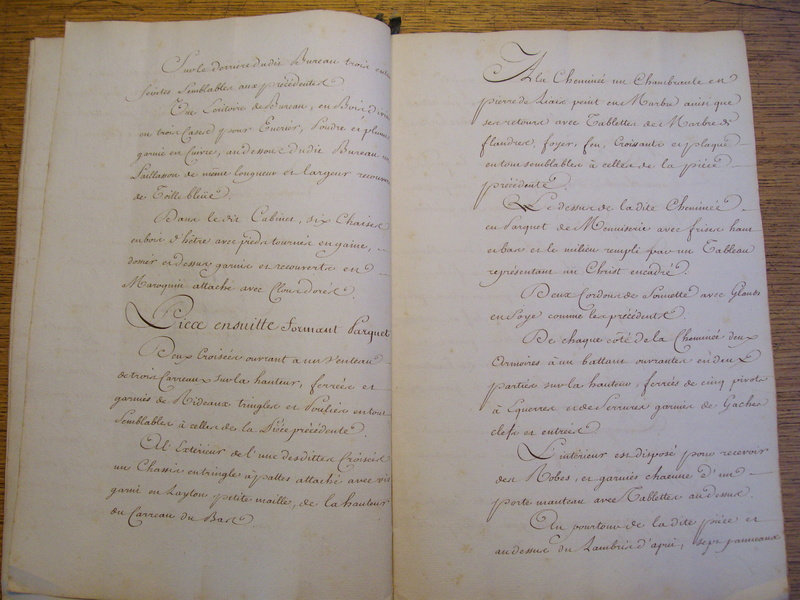 Sur le derriere dudit Bureau trois
feintes Semblables aux précédentes
Une Ecritoire de Bureau, en Bois
en trois Cases pour Encrier, Poudre et plumes
garnie en Cuivre, au dessous dudit Bureau un
Paillasson de même longueur et largeur recouvert
de Toille bleüe.
Dans le dit Cabinet, six Chaises
en bois d'hêtre avec pieds tournés en gaine,
dossier et dessus garnis et recouverts en
Maroquin attaché avec Clous dorés.
Piece ensuitte formant Parquet
Deux Croisées ouvrant à un Venteau
de trois Carreaux sur la hauteur, ferrées et
garnies de Rideaux tringles et Poulies en tout
Semblables à celles de la Piéce précédente.
A l'Extérieur de l'une desdittes Croisées
un Chassis en tringle à pattes attaché avec vis
garni en Layton petite maille, de la hauteur
du Carreau du Bas.
A la Cheminée un Chambranle en
pierre de Liais peint en Marbre ainsi que
ses retours avec Tablettes de Marbre de
flandres, foyer, feu, Croissants et plaque
en tout semblables à celles de la piéce
précédente.
Le dessus de la dite Cheminée
en Parquet de Menuiserie avec frises haut
et bas et le milieu rempli par un Tableau
représentant un Christ encadré.
Deux Cordons de Sonnette avec Glands
en Soye comme les précédents.
De chaque côté de la Cheminée deux
Armoires à un battant ouvrantes en deux
parties sur la hauteur, ferrées de cinq pivots
à Equerres et de Serrures garnies de Gaches
clefs et entrées
L'intérieur est disposé pour recevoir
des Robes, et garnies chacune d'un
porte manteau avec Tablettes au dessus.
Au pourtour de la dite piéce et
au dessus du Lambris d'apui, sept panneaux